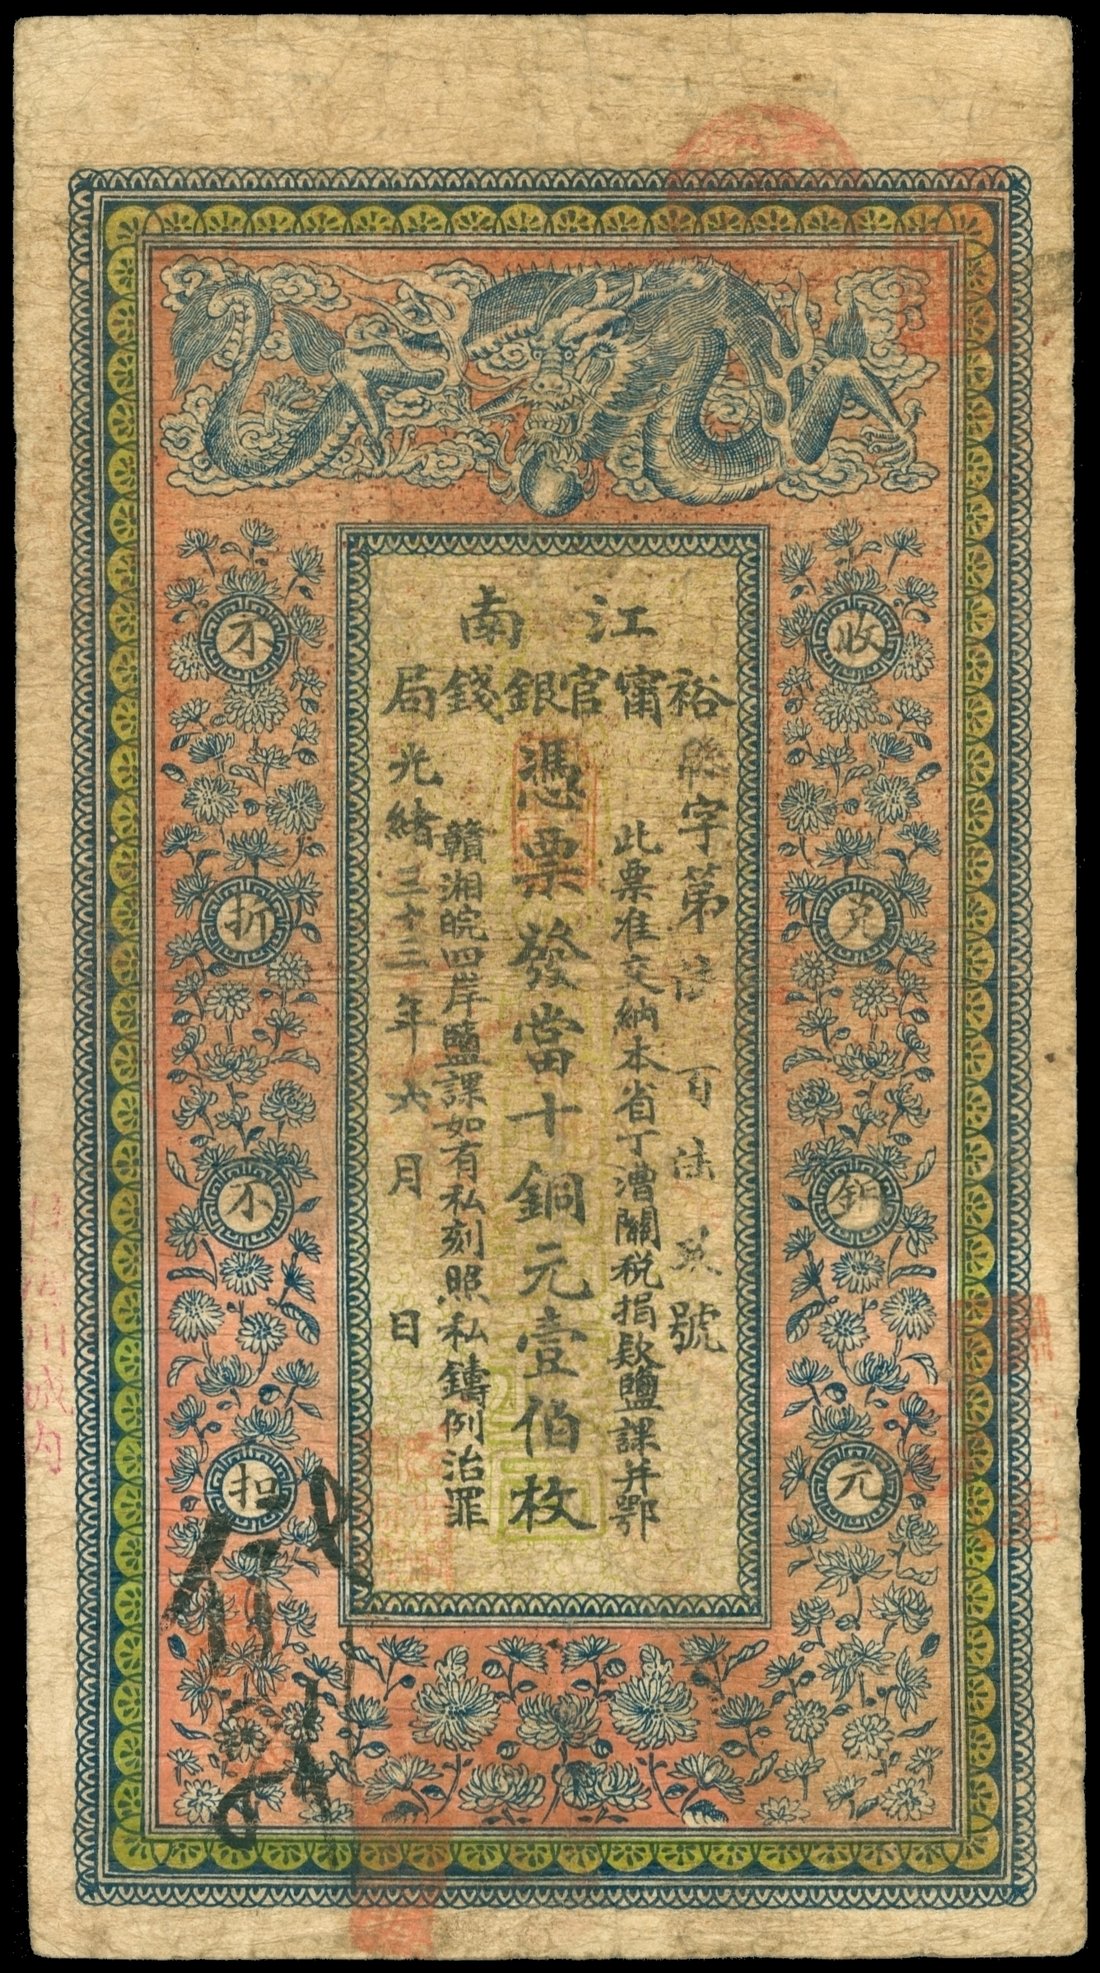 江南
裕甯官銀錢局
字第陸百陸號
此票准交納本省丁漕關税捐款鹽課并鄂
憑票發當十銅元壹伯枚
贛湘皖四岸鹽課如有私刻照私鑄例治罪
光緒三十三年六月 日
收兌銅元
不折不扣